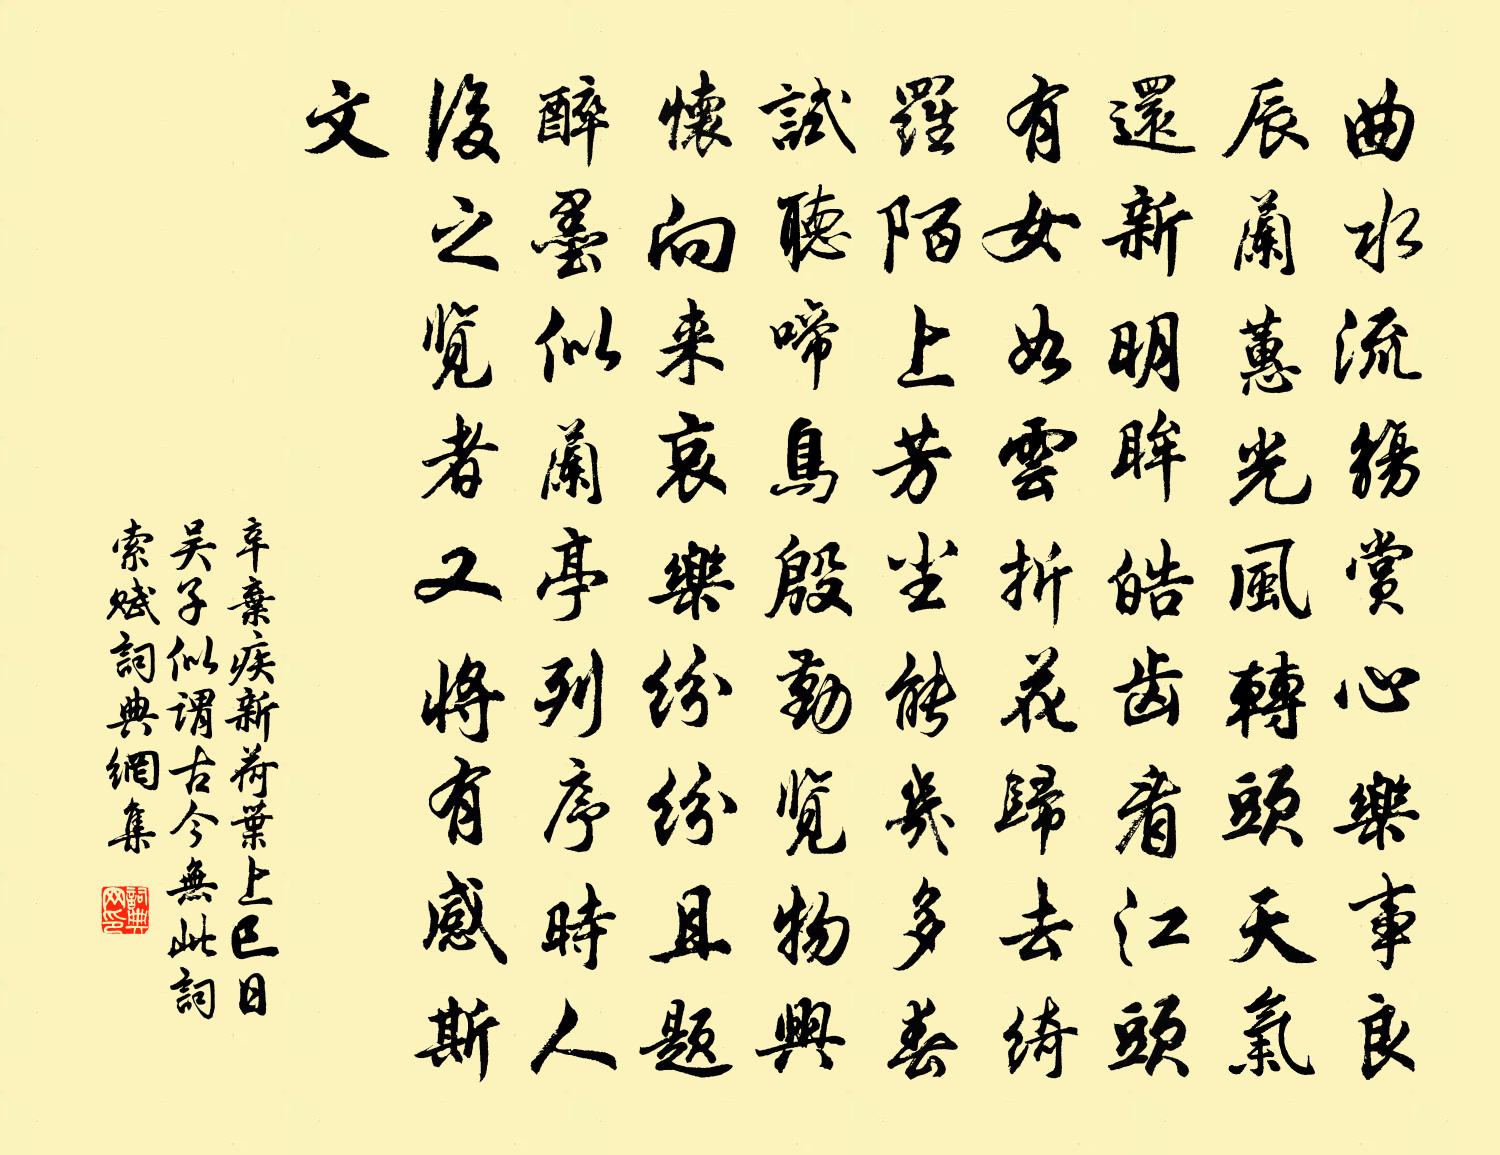 曲水流觴賞心樂事良
辰蘭蕙光風轉頭天氣
還新明眸皓齿看江頭
有女如雲折花歸去綺
羅陌上芳尘能幾多春
試聽啼鳥殷勤览物興
懷向来哀樂紛紛且題
醉墨似蘭亭列序時人
後之览者又將有感斯
文
辛棄疾新荷葉上巳日
吴子似謂古今無此詞
索赋詞典網集
詞典網印